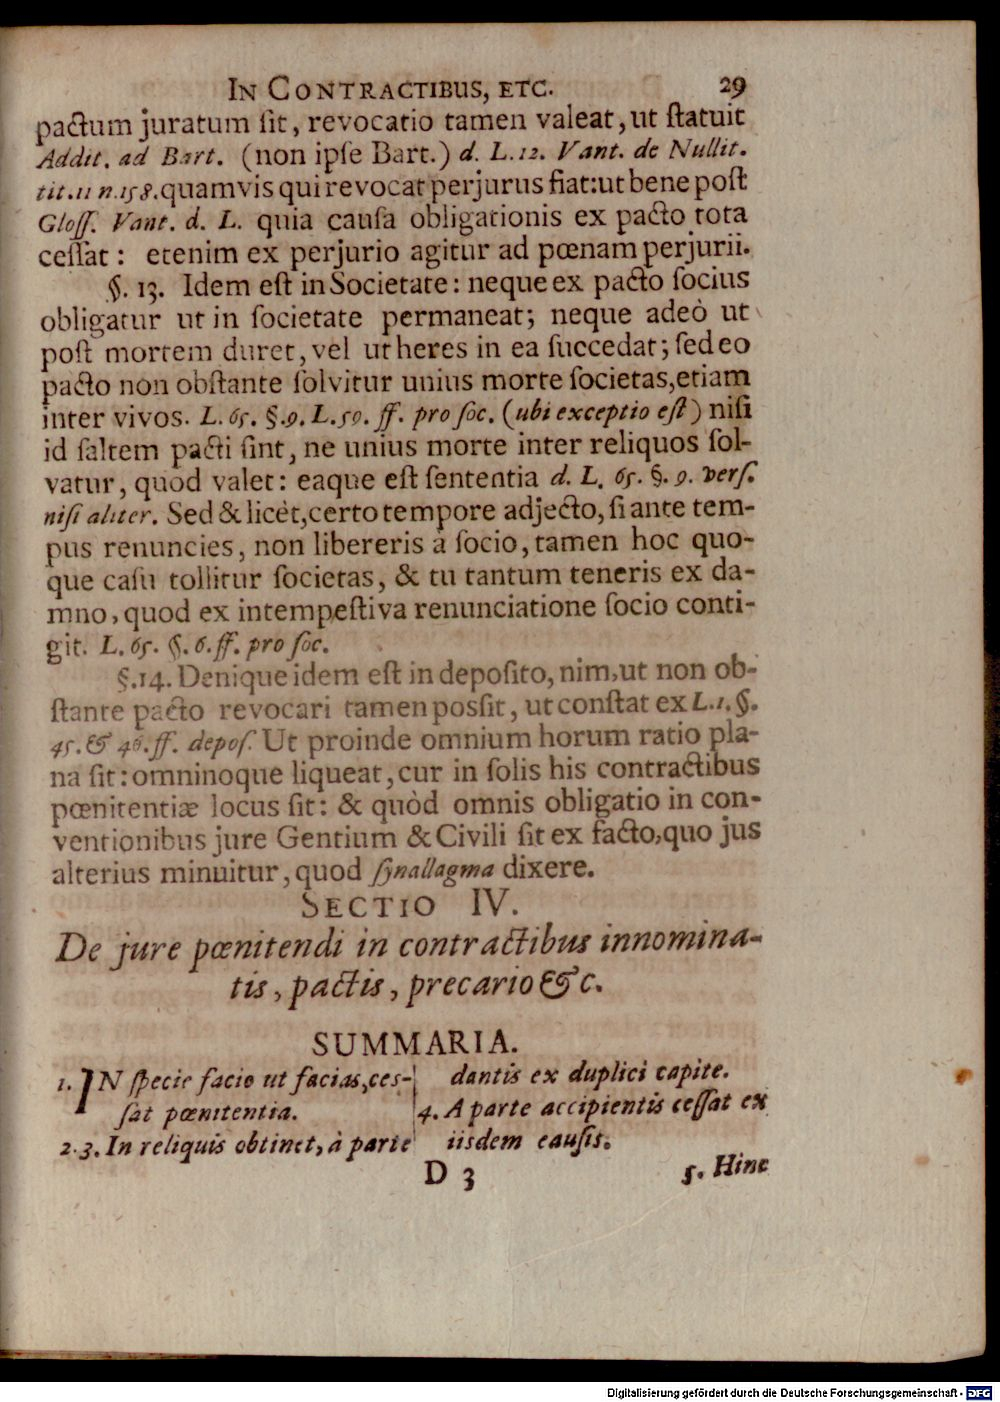 IN CONTRACTIBUS, ETC. 29
pactum juratum ſit, revocatio tamen valeat, ut ſtatuit
Addit. ad Bart. (non ipſe Bart.) d. L. 12. Vant. de Nullit.
tit. 11 n. 158. quamvis qui revocat perjurus fiat: ut bene poſt
Gloſſ. Vant. d. L. quia cauſa obligationis ex pacto tota
ceſſat: etenim ex perjurio agitur ad pœnam perjurii.
§. 13. Idem eſt in Societate: neque ex pacto ſocius
obligatur ut in ſocietate permaneat; neque adeò ut
poſt mortem duret, vel ut heres in ea ſuccedat; ſed eo
pacto non obſtante ſolvitur unius morte ſocietas, etiam
inter vivos. L. 65. §. 9. L. 59. ff. pro ſoc. (ubi exceptio eſt) niſi
id ſaltem pacti ſint, ne unius morte inter reliquos ſol-
vatur, quod valet: eaque eſt ſententia d. L. 65. §. 9. verſ.
niſi aliter. Sed & licèt, certo tempore adjecto, ſi ante tem-
pus renuncies, non libereris à ſocio, tamen hoc quo-
que caſu tollitur ſocietas, & tu tantum teneris ex da-
mno, quod ex intempeſtiva renunciatione ſocio conti-
git. L. 65. §. 6. ff. pro ſoc.
§. 14. Denique idem eſt in depoſito, nim, ut non ob-
ſtante pacto revocari tamen poſſit, ut conſtat ex L. 1. §.
45. & 46. ff. depoſ. Ut proinde omnium horum ratio pla-
na ſit: omninoque liqueat, cur in ſolis his contractibus
pœnitentiæ locus ſit: & quòd omnis obligatio in con-
ventionibus jure Gentium & Civili ſit ex facto, quo jus
alterius minuitur, quod ſynallagma dixere.
SECTIO IV.
De jure pœnitendi in contractibus innomina-
tis, pactis, precario &c.
SUMMARIA.
1. IN ſpecie facio ut facias, ceſ-
ſat pœnitentia.
2. 3. In reliquis obtinet, à parte
dantis ex duplici capite.
4. A parte accipientis ceſſat ex
iisdem cauſis.
D 3
5. Hinc
Digitalisierung gefördert durch die Deutsche Forschungsgemeinschaft - DFG